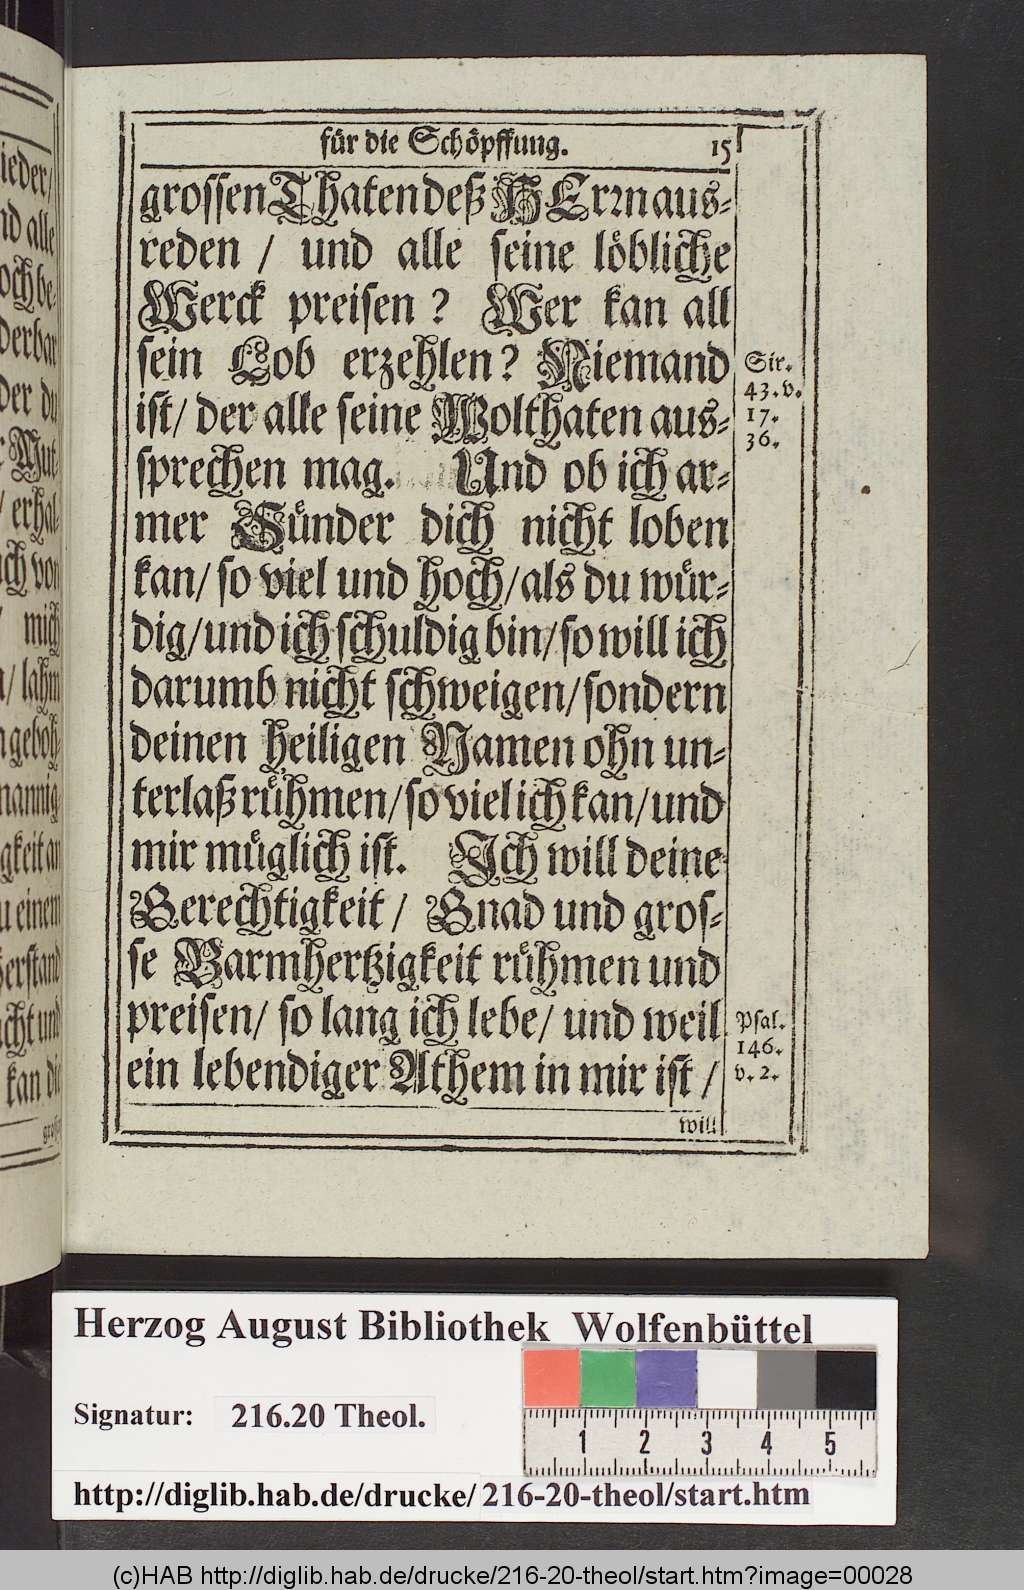 für die Schöpffung. 15
grossen Thaten deß HErrn aus-
reden / und alle seine löbliche
Werck preisen ? Wer kan all
sein Lob erzehlen ? Niemand
ist / der alle seine Wolthaten aus-
sprechen mag. Und ob ich ar-
mer Sünder dich nicht loben
kan / so viel und hoch / als du wür-
dig / und ich schuldig bin / so will ich
darumb nicht schweigen / sondern
deinen heiligen Namen ohn un-
terlaß rühmen / so viel ich kan / und
mir müglich ist. Ich will deine
Gerechtigkeit / Gnad und gros-
se Barmhertzigkeit rühmen und
preisen / so lang ich lebe / und weil
ein lebendiger Athem in mir ist /
will
Sir.
43. v.
17.
36.
Psal.
146.
v. 2.
ieder /
nd alle
och be-
derbar
der du
Mut-
/ erhal-
ich von
/ mich
/ lahm
geboh-
mannig-
gkeit an
u einem
erstand
cht und
kan di
Herzog August Bibliothek Wolfenbüttel
Signatur: 216.20 Theol.
1 2 3 4 5
http://diglib.hab.de/drucke/216-20-theol/start.htm
(c)HAB http://diglib.hab.de/drucke/216-20-theol/start.htm?image=00028